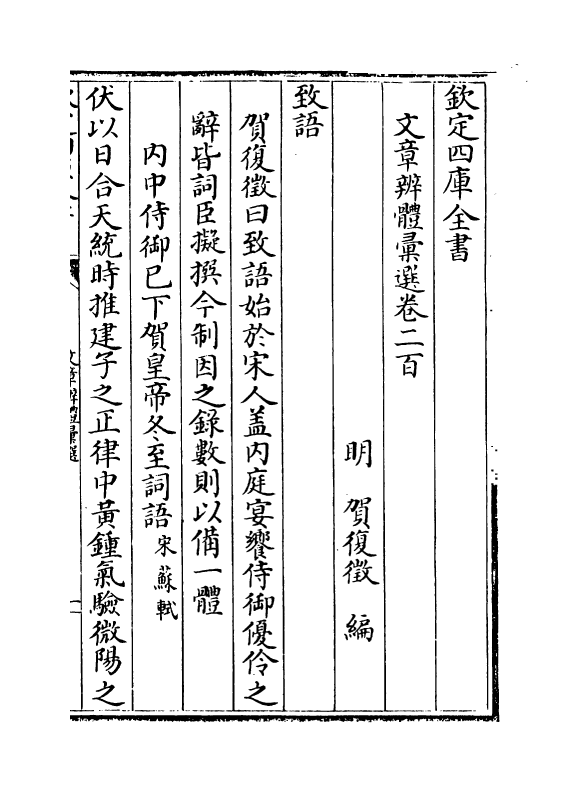 欽定四庫全書
文章辨體彙選卷二百
明 賀復徵 編
致語
賀復徵曰致語始於宋人盖内庭宴饗侍御優伶之
辭皆詞臣擬撰今制因之錄數則以備一體
内中侍御已下賀皇帝冬至詞語 宋蘇軾
伏以日合天統時推建子之正律中黃鍾氣驗微陽之